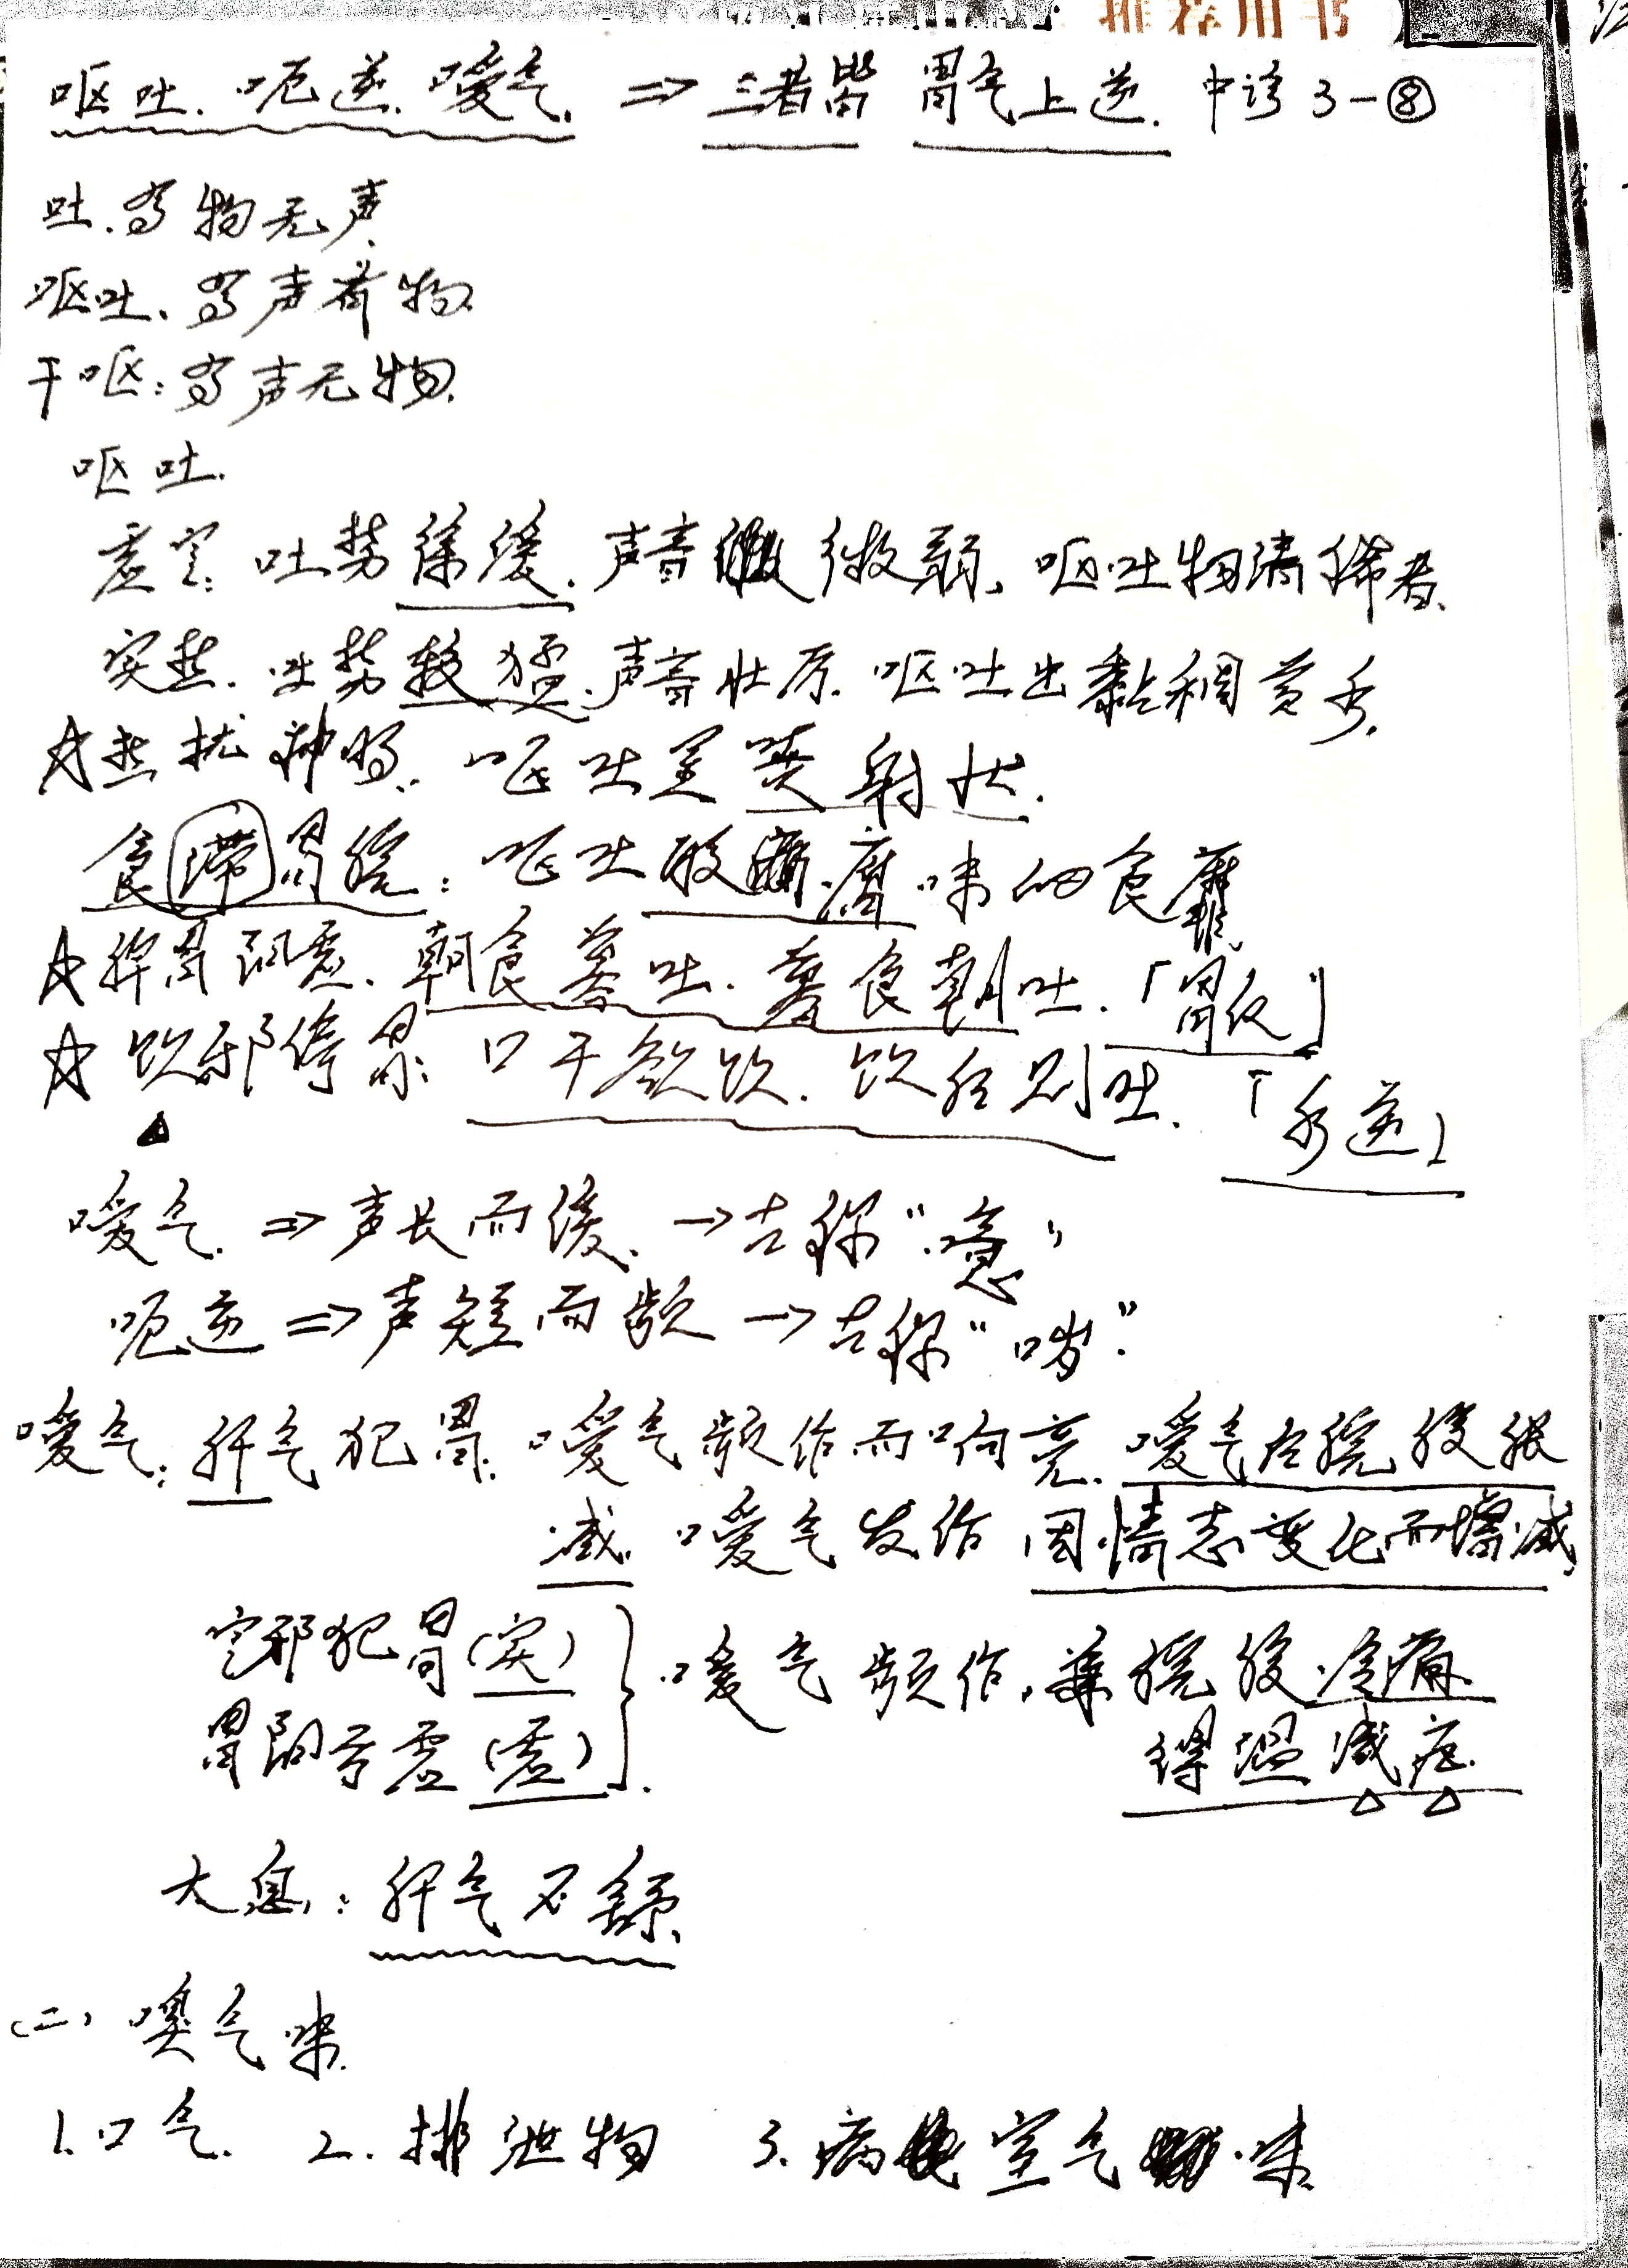 推荐用书
呕吐.呃逆.嗳气. ⇒ 三者皆 胃气上逆. 中诊 3-⑧
吐.有物无声.
呕吐.有声有物.
干呕:有声无物.
呕吐.
虚寒:吐势徐缓.声音微弱.呕吐物清稀者.
实热.吐势较猛.声音壮厉.呕吐出黏稠黄水.
☆热扰神明.呕吐呈喷射状.
食滞胃脘:呕吐酸腐味的食糜.
☆脾胃阳虚.朝食暮吐.暮食朝吐.「胃反」
☆饮邪停胃:口干欲饮.饮后则吐.「水逆」
嗳气.⇒声长而缓.→古称“噫”
呃逆⇒声短而频→古称“哕”.
嗳气:肝气犯胃.嗳气频作而响亮.嗳气后脘腹胀
减.嗳气发作因情志变化而增减
寒邪犯胃(实)
胃阳亏虚(虚)
}嗳气频作,兼脘腹冷痛.
得温减症.
太息:肝气不舒.
(二)嗅气味.
1.口气. 2.排泄物 3.病室气味.